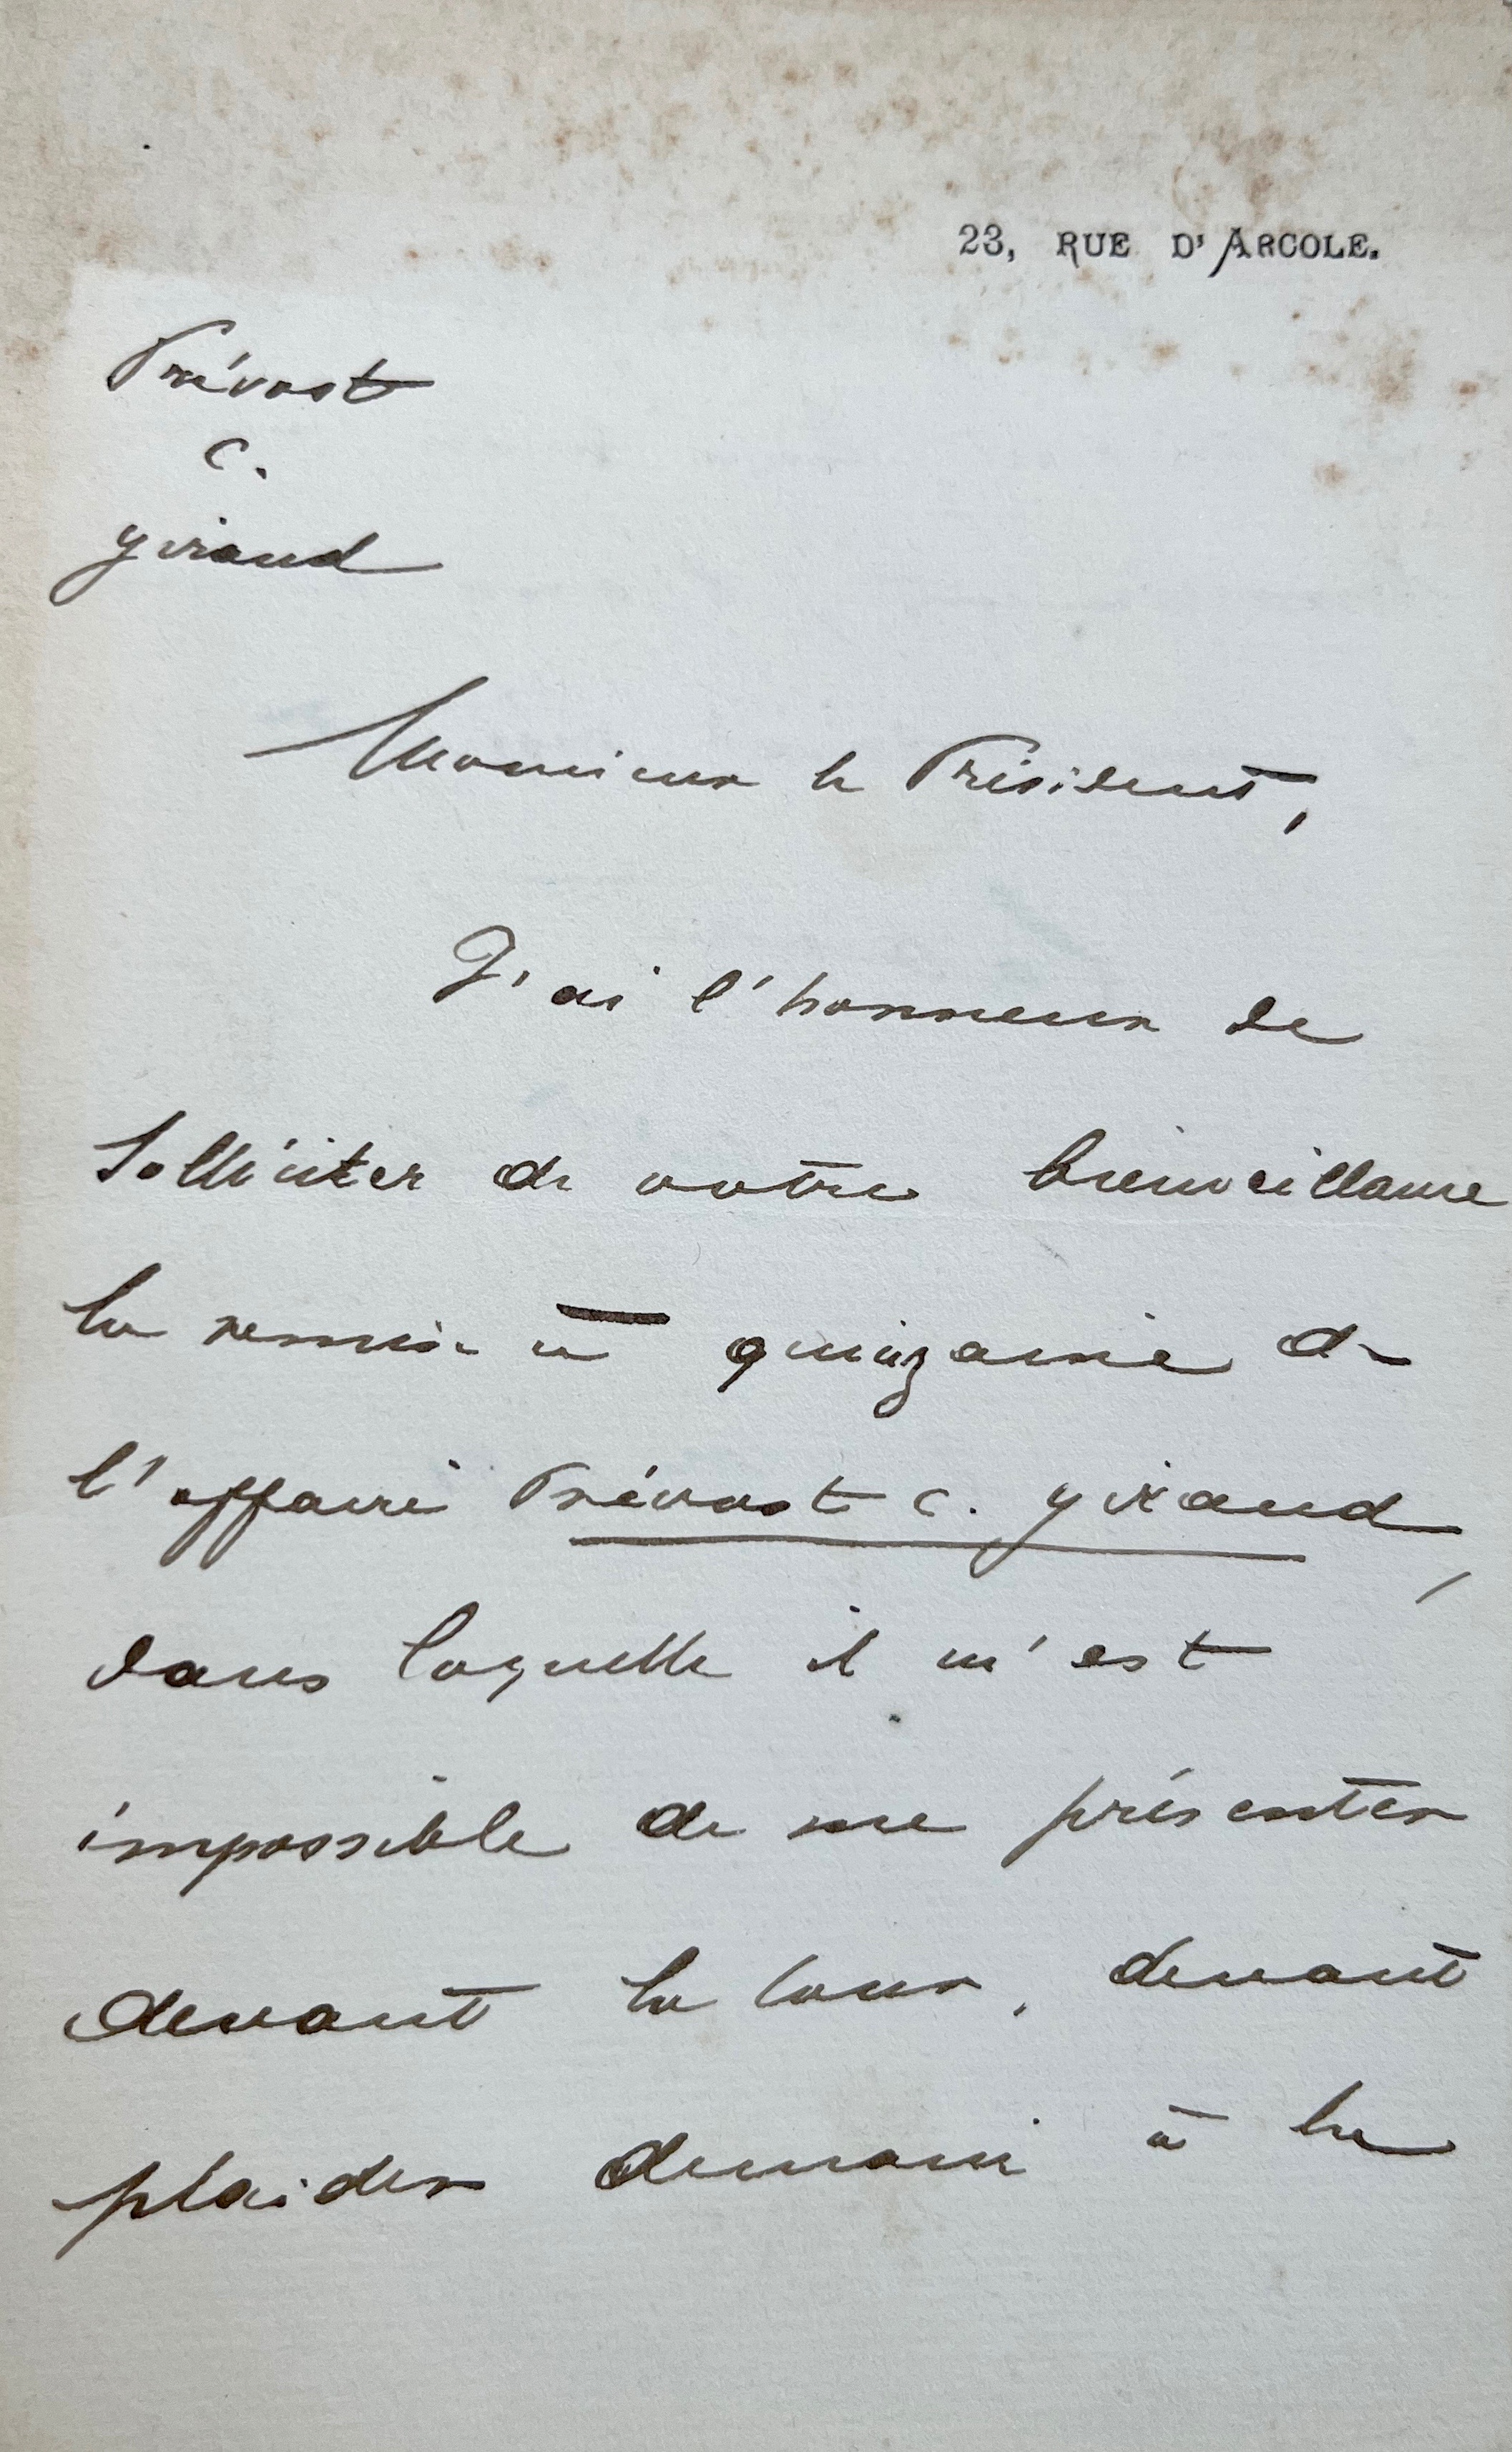 23, RUE D'ARCOLE.
Prévost
c.
Giraud
Monsieur le Président,
J'ai l'honneur de
solliciter de votre bienveillance
la remise à quinzaine de
l'affaire Prévost c. Giraud,
dans laquelle il m'est
impossible de me présenter
devant la Cour, devant
plaider demain à la